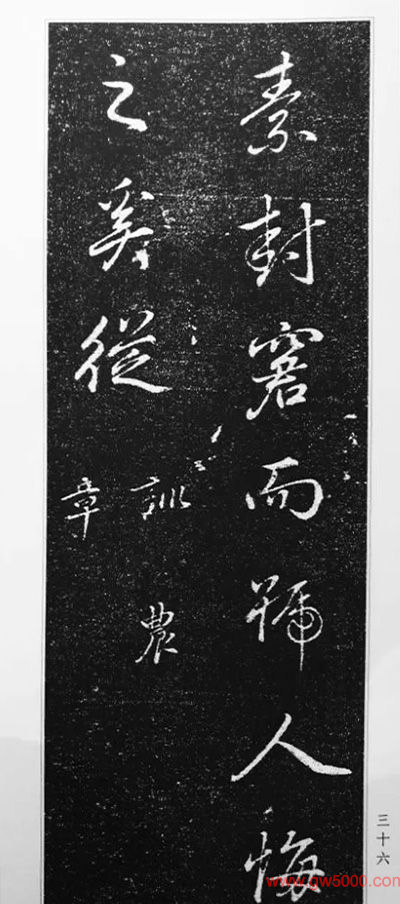 素封窘而號人悔
之奚從
訓農
章
三十六
www.gw5000.com